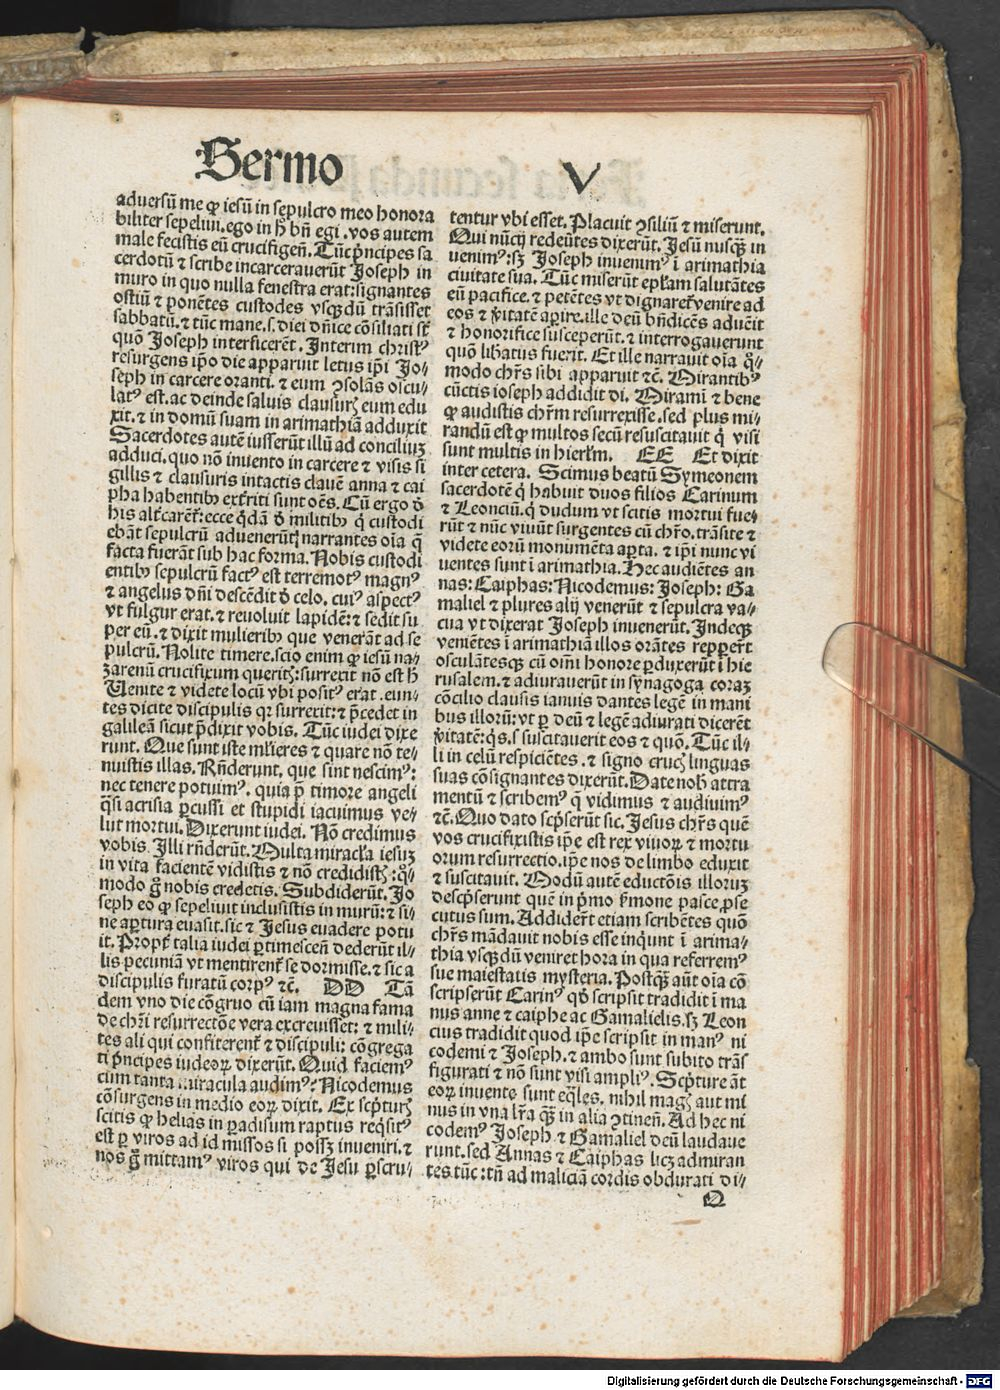 Sermo V
adversũ me ꝙ iesũ in sepulcro meo honora
biliter sepelivi. ego in h̊ bñ egi. vos autem
male fecistis eũ crucifigeñ. Tũc p̃ncipes sa
cerdotũ ⁊ scribe incarceraverũt Joseph in
muro in quo nulla fenestra erat: signantes
ostiũ ⁊ ponẽtes custodes vsq̃dũ trãsisset
sabbatũ. ⁊ tũc mane. s. diei dñice cõsiliati st̃
quõ Joseph interficerẽt. Interim christꝰ
resurgens ip̃o die apparuit letus ip̃i Jo⸗
seph in carcere oranti. ⁊ eum ꝯsolãs oscu⸗
latꝰ est. ac deinde salvis clausurꝭ eum edu
xit. ⁊ in domũ suam in arimathiã adduxit
Sacerdotes autẽ iusserũt illũ ad conciliuꝫ
adduci. quo nõ invento in carcere ⁊ visis si
gillis ⁊ clausuris intactis clavẽ anna ⁊ cai
pha habentibꝰ ext̃riti sunt oẽs. Cũ ergo ð
his alt̃carẽt̃: ecce q̇dã ð militibꝰ q̇ custodi
ebãt sepulcrũ advenerũt narrantes oĩa q̃
facta fuerãt sub hac forma. Nobis custodi
entibꝰ sepulcrũ factꝰ est terremotꝰ magnꝰ
⁊ angelus dñi descẽdit ð celo. cuiꝰ aspectꝰ
vt fulgur erat. ⁊ revoluit lapidẽ: ⁊ sedit su
per eũ. ⁊ dixit mulieribꝰ que venerãt ad se
pulcrũ. Nolite timere. scio enim ꝙ iesũ na⸗
zarenũ crucifixum queritꝭ: surrexit nõ est h̊
Uenite ⁊ videte locũ vbi positꝰ erat. eun⸗
tes dicite discipulis qꝛ surrexit: ⁊ p̃cedet in
galileã sicut p̃dixit vobis. Tũc iudei dixe
runt. Que sunt iste ml̃ieres ⁊ quare nõ te⸗
nuistis illas. Rñderunt. que sint nescimꝰ:
nec tenere potuimꝰ. quia p̃ timore angeli
q̃si acrisia ꝑcussi et stupidi iacuimus ve⸗
lut mortui. Dixerunt iudei. Nõ credimus
vobis. Illi rñderũt. Multa miracl̃a iesuꝫ
in vita facientẽ vidistis ⁊ nõ credidistꝭ: q̊⸗
modo g̊ nobis credetis. Subdiderũt. Jo
seph eo ꝙ sepelivit inclusistis in murũ: ⁊ si⸗
ne aꝑtura evasit. sic ⁊ Jesus evadere potu
it. Propt̃ talia iudei ꝑtimesceñ dederũt il⸗
lis pecuniã vt mentirent̃ se dormisse. ⁊ sic a
discipulis furatũ corpꝰ ⁊c̃. DD Tã
dem vno die cõgruo cũ iam magna fama
de chr̃i resurrectõe vera excrevisset: ⁊ mili⸗
tes ali qui confiterent̃ ⁊ discipuli: cõgrega
ti p̃ncipes iudeoꝝ dixerũt. Quid faciemꝰ
cum tanta miracula audimꝰ? Nicodemus
cõsurgens in medio eoꝝ dixit. Ex scp̃turꝭ
scitis ꝙ helias in ꝑadisum raptus req̇sitꝰ
est ꝑ viros ad id missos si possꝫ inveniri. ⁊
nos g̊ mittamꝰ viros qui de Jesu ꝑscru⸗
tentur vbi esset. Placuit ꝯsiliũ ⁊ miserunt.
Qui nũcij redeũtes dixerũt. Jesũ nusq̃ in
venimꝰ: sꝫ Joseph invenimꝰ ĩ arimathia
civitate sua. Tũc miserũt epl̃am salutãtes
eũ pacifice. ⁊ petẽtes vt dignaret̃ venire ad
eos ⁊ ṽitatẽ aꝑire. ille deũ bñdicẽs advẽit
⁊ honorifice susceperũt. ⁊ interrogaverunt
quõ lib̃atus fuerit. Et ille narravit oĩa q̊⸗
modo chr̃s sibi apparuit ⁊c̃. Mirantibꝰ
cũctis ioseph addidit di. Miramĩ ⁊ bene
ꝙ audistis chr̃m resurrexisse. sed plus mi⸗
randũ est ꝙ multos secũ resuscitavit q̇ visi
sunt multis in hierl̃m. EE Et dixit
inter cetera. Scimus beatũ Symeonem
sacerdotẽ q̇ habuit duos filios Carinum
⁊ Leonciũ. q̇ dudum vt scitis mortui fue⸗
rũt ⁊ nũc vivũt surgentes cũ chr̃o. trãsite ⁊
videte eorũ monumẽta aꝑta. ⁊ ip̃i nunc vi
ventes sunt ĩ arimathia. Hec audiẽtes an
nas: Caiphas: Nicodemus: Joseph: Ga
maliel ⁊ plures alij venerũt ⁊ sepulcra va⸗
cua vt dixerat Joseph invenerũt. Indeqꝫ
veniẽtes ĩ arimathiã illos orãtes repperert̃
osculãtesqꝫ cũ oĩm honore ꝑduxerũt ĩ hie
rusalem. ⁊ adiuraverũt in synagoga coraꝫ
cõcilio clausis ianuis dantes legẽ in mani
bus illorũ: vt ꝑ deũ ⁊ legẽ adiurati dicerẽt
ṽitatẽ: q̃s. s suscitaverit eos ⁊ quõ. Tũc il⸗
li in celũ respiciẽtes. ⁊ signo crucꝭ linguas
suas cõsignantes dixerũt. Date nob̃ attra
mentũ ⁊ scribemꝰ q̃ vidimus ⁊ audivimꝰ
⁊c̃. Quo dato scp̃serũt sic. Jesus chr̃s quẽ
vos crucifixistis ip̃e est rex vivoꝝ ⁊ mortu
orum resurrectio. ip̃e nos de limbo eduxit
⁊ suscitavit. Modũ autẽ eductõis illoruꝫ
descp̃serunt quẽ in p̃mo s̃mone pasce ꝓse
cutus sum. Addidert̃ etiam scribẽtes quõ
chr̃s mãdavit nobis esse inqunt ĩ arima⸗
thia vsq̃dũ veniret hora in qua referremꝰ
sue maiestatis mysteria. Postq̃ aũt oĩa cõ
scripserũt Carinꝰ qð scripsit tradidit ĩ ma
nus anne ⁊ caiphe ac Gamalielis. sꝫ Leon
cius tradidit quod ip̃e scripsit in manꝰ ni
codemi ⁊ Joseph. ⁊ ambo sunt subito trãs
figurati ⁊ nõ sunt visi ampliꝰ. Scp̃ture ãt
eoꝝ invente sunt eq̃les. nihil magꝭ aut mi
nus in vna lr̃a q̃ in alia ꝯtineñ. Ad hec ni
codemꝰ Joseph ⁊ Gamaliel deũ laudave
runt. sed Annas ⁊ Caiphas licꝫ admiran
tes tũc: tñ ad maliciã cordis obdurati di⸗
Q
Digitalisierung gefördert durch die Deutsche Forschungsgemeinschaft - DFG